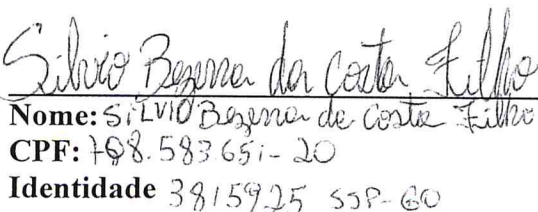 Silvio Bezerra da Costa Filho
Nome: SILVIO Bezerra da Costa Filho
CPF: 708.583.651-20
Identidade 3815925 SSP-GO